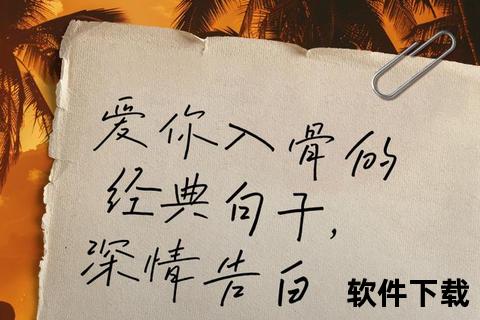 爱你入骨的
经典句子,
深情告白
软件下载